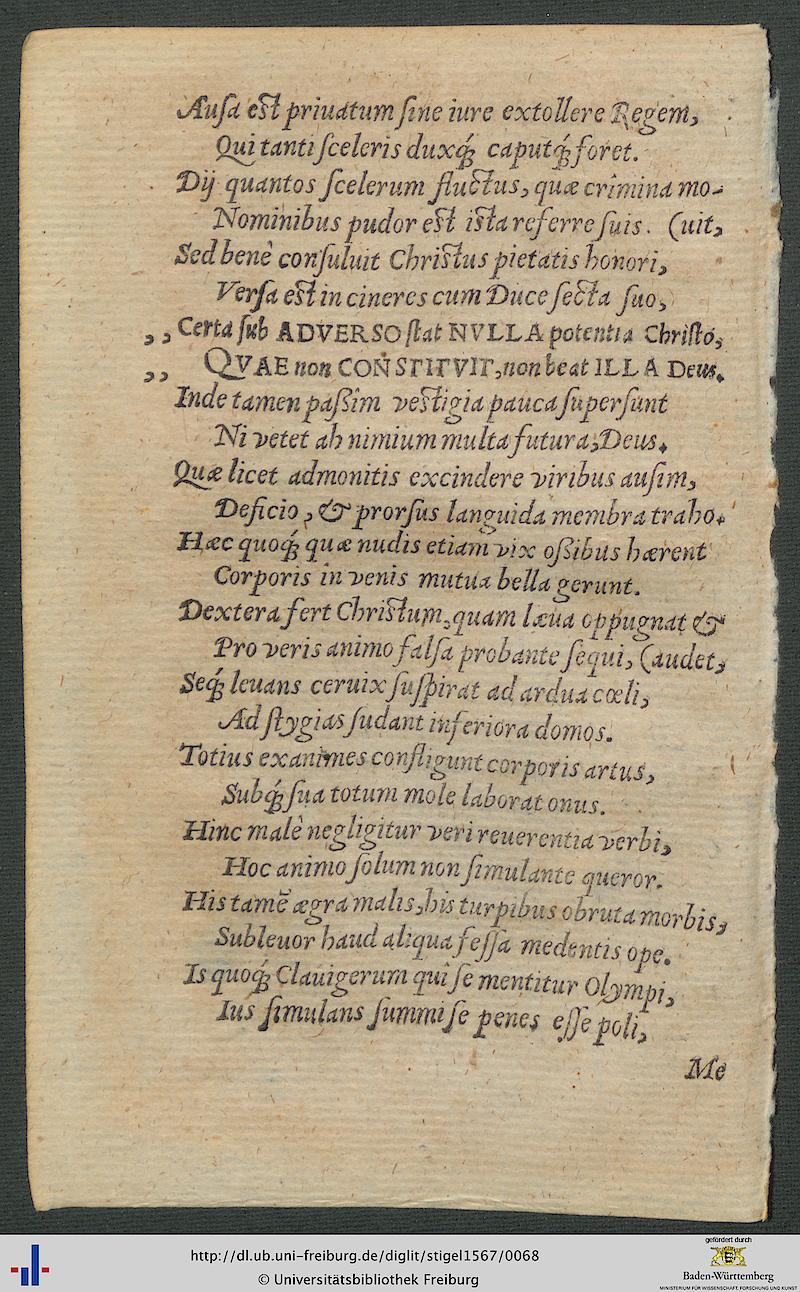 Auſa est priuatum ſine iure extollere Regem,
Qui tanti ſceleris duxq́; caputq́; foret.
Dij quantos ſcelerum fluctus, quæ crimina mo-
Nominibus pudor est ista referre ſuis. (uit,
Sed benè conſuluit Christus pietatis honori,
Verſa est in cineres cum Duce ſecta ſuo,
,, Certa ſub ADVERSO stat NVLLA potentia Christo,
,, QVAE non CONSTITVIT, non beat ILLA Deus.
Inde tamen paßim vestigia pauca ſuperſunt
Ni vetet ah nimium multa futura, Deus.
Quæ licet admonitis excindere viribus auſim,
Deficio, & prorſus languida membra traho.
Hæc quoq́; quæ nudis etiam vix oßibus hærent
Corporis in venis mutua bella gerunt.
Dextera fert Christum, quam læua oppugnat &
Pro veris animo falſa probante ſequi, (audet,
Seq́; leuans ceruix ſuſpirat ad ardua cœli,
Ad stygias ſudant inferiora domos.
Totius exanimes confligunt corporis artus,
Subq́; ſua totum mole laborat onus.
Hinc malè negligitur veri reuerentia verbi,
Hoc animo ſolum non ſimulante queror.
His tamē ægra malis, his turpibus obruta morbis,
Subleuor haud aliqua feſſa medentis ope.
Is quoq́; Clauigerum qui ſe mentitur Olympi,
Ius ſimulans ſummi ſe penes eſſe poli,
Me
http://dl.ub.uni-freiburg.de/diglit/stigel1567/0068
© Universitätsbibliothek Freiburg
gefördert durch
Baden-Württemberg
MINISTERIUM FÜR WISSENSCHAFT, FORSCHUNG UND KUNST